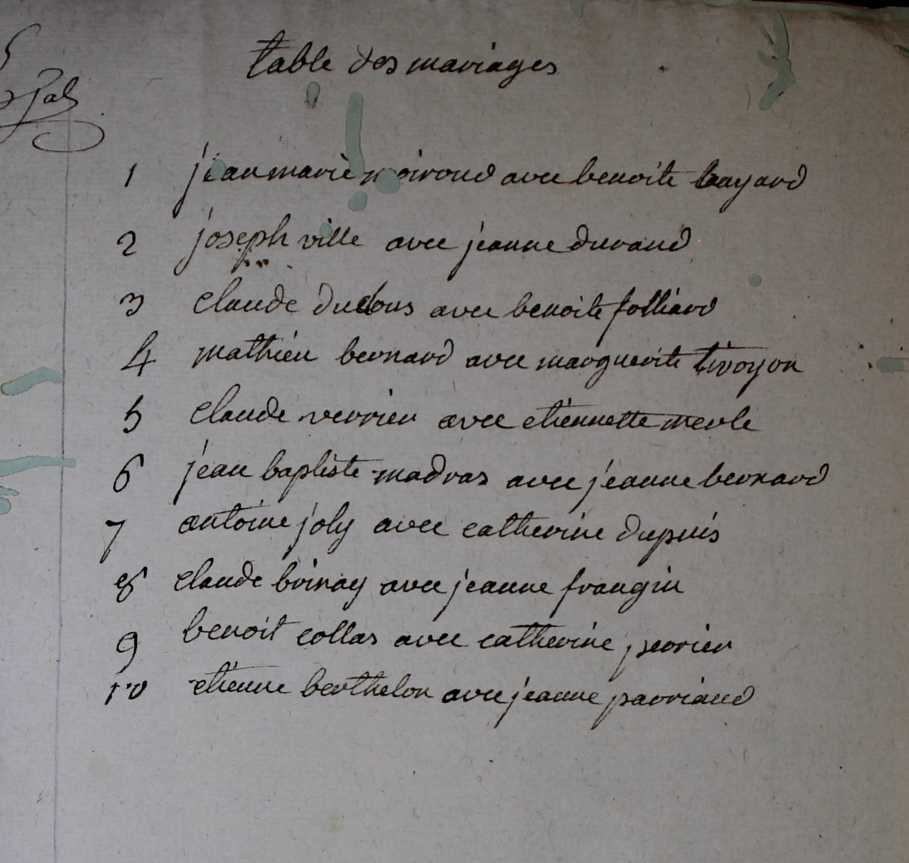 table des mariages
1 jean marie noiroud avec benoite bayard
2 joseph ville avec jeanne durand
3 claude duclous avec benoite folliard
4 mathieu bernard avec marguerite tivoyon
5 claude verrier avec etiennette merle
6 jean baptiste madras avec jeanne bernard
7 antoine joly avec catherine dupuis
8 claude boinay avec jeanne frangin
9 benoit collas avec catherine perrier
10 etienne berthelon avec jeanne parriaud